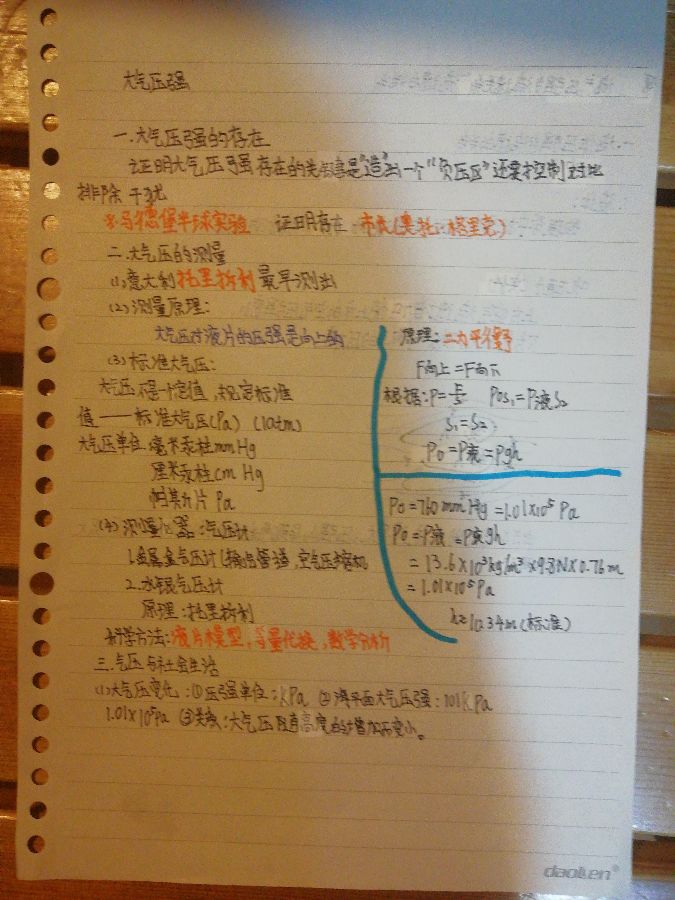 大气压强
一.大气压强的存在
证明大气压强存在的关键是"造"出一个"负压区"还要控制对比
排除干扰
※马德堡半球实验 证明存在 市长(奥托·格里克)
二.大气压的测量
(1)意大利托里拆利最早测出
(2)测量原理:
大气压对液片的压强是向上的
(3)标准大气压:
大气压不是一个定值,规定标准
值——标准大气压(Pa) (1atm)
大气压单位.毫米汞柱mmHg
厘米汞柱cm Hg
帕斯卡 Pa
(4)测量仪器:气压计
1.金属盒气压计(
2.水银气压计
原理:托里拆利
科学方法:液片模型,等量代换,数学分析
原理:二力平衡
F向上=F向下
根据:P=F/S P0S1=P液S2
S1=S2
P0=P液=ρgh
P0=760mmHg=1.01×10⁵Pa
P0=P液=ρ液gh
=13.6×10³kg/m³×9.8N×0.76m
=1.01×10⁵Pa
(标准)
三.气压与社会生活
(1)大气压变化:①压强单位:kPa ②海平面大气压强:101kPa
1.01×10⁵Pa ③关系:大气压随着高度的增加而变小。
daolen®